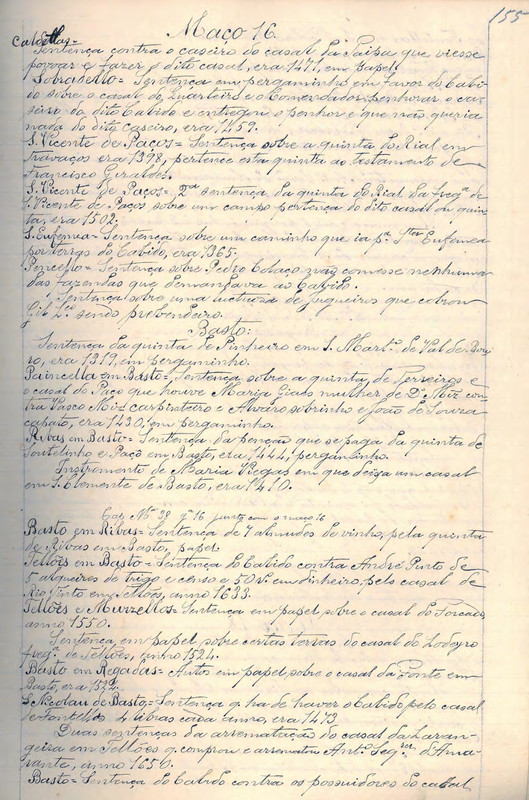 155
Maço 16.
Caldellas=
Sentença contra o caseiro do casal da Paipa que viesse
povoar e fazer o dito casal, era 1471, em papel.
Sobradello= Sentença em pergaminho em favor do Cabi-
do sobre o casal do Quarteiro e o Comendador penhorar o ca-
seiro do dito Cabido e entregou o penhor e que mão queria
nada do dito caseiro, era 1459.
S. Vicente de Paços= Sentença sobre a quinta do Rial em
travaços era 1398, pertence esta quinta ao testamento de
Francisco Giraldes.
S. Vicente de Paços= 2ª sentença da quinta do Rial da freg.ª de
S. Vicente de Paços sobre um campo pertença do dito casal da quin-
ta, era 1502.
S. Eufemea= Sentença sobre um caminho que ia p.ª Eufemea
por terras do Cabido, era 1365.
Sentença sobre Pedro Colaço mão comesse nenhuma
das fazendas que demandava ao Cabido.
Sentença sobre uma luctuosa de Jugueiros que cobrou
Gil Lç.º sendo prebendeiro.
Basto:
Sentença da quinta de Pinheiro em S. Mart.º de Val de Bou-
ro, era 1319, em pergaminho.
Painzella em Basto= Sentença sobre a quinta de Terseiros e
o casal do Paço que houve Maria mulher de D.º Miz con-
tra Vasco Miz carpinteiro e Alvaro sobrinho e João de Toura
çapato, era 1430, em pergaminho.
Ribas em Basto= Sentença da penção que se paga da quinta de
Soutelinho e Paço em Basto, era 1444, pergaminho.
Instromento de Maria Viegas em que deixa um casal
em S. Clemente de Basto, era 1410.
Cax. Nº 38 gª 16 junto com o maço 16
Basto em Ribas= Sentença de 7 almudes de vinho, pela quinta
de Ribas em Basto, papel.
Tellões em Basto= Sentença do Cabido contra André Pinto de
5 alqueires de trigo e censo e 50 rs. em dinheiro, pelo casal de
Rio Pinto em Tellões, anno 1633.
Tellões e Murzellos= Sentença em papel sobre o casal do Torcado,
anno 1550.
Sentença em papel sobre certas terras do casal do Lodeyro
freg.ª de Tellões, anno 1524.
Basto em Regadas= Autos em papel sobre o casal da Fonte em
Basto, era 1522.
S. Nicolau de Basto= Sentença q. ha de haver o Cabido pelo casal
de Fontellos 4 libras cada anno, era 1473
Duas sentenças da arrematação do casal da Laran-
geira em Tellões q. comprou e arrematou Ant.º Seq.ra d'Ama-
rante, anno 1656.
Basto= Sentença do Cabido contra os possuidores do casal